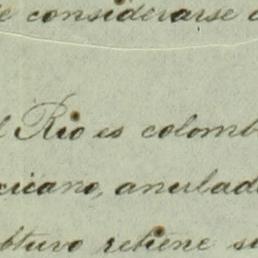 e considerarse
l Rio es colomb
icano, anulad
btuvo retiene s